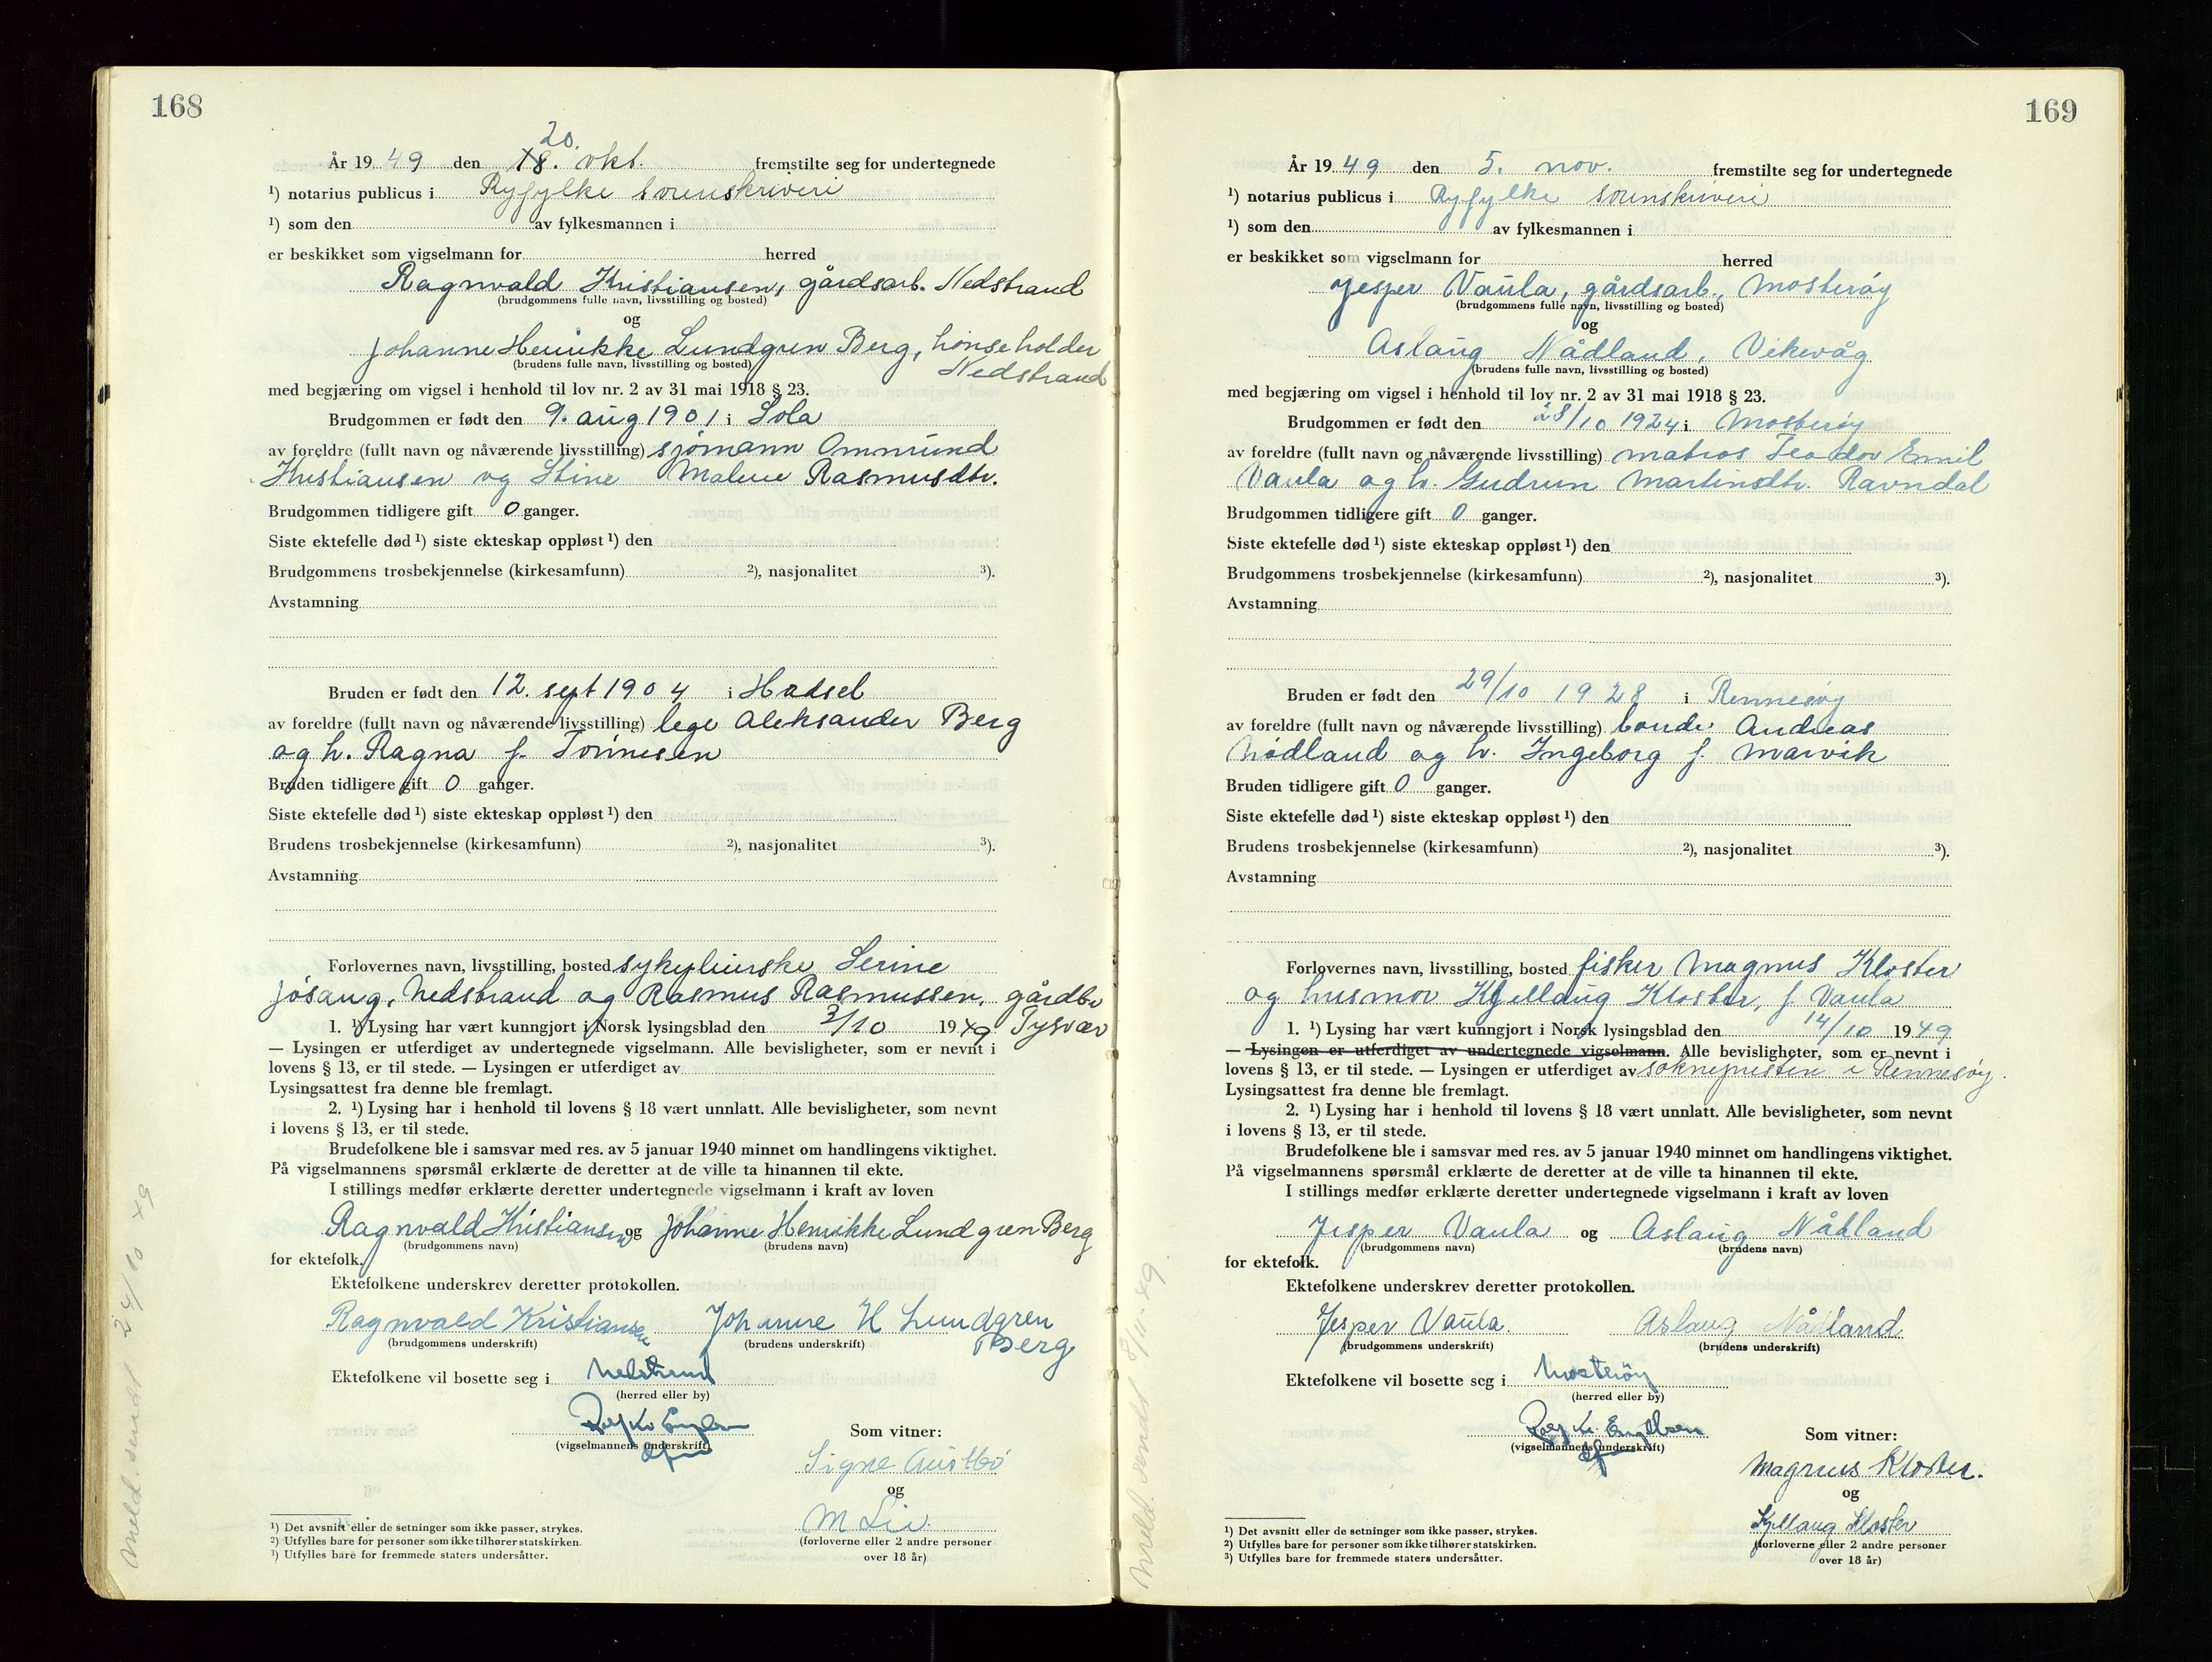 168
20.
År 1949 den 18. okt. fremstilte seg for undertegnede
¹) notarius publicus i Ryfylke sorenskriveri
¹) som den av fylkesmannen i
er beskikket som vigselmann for herred
Ragnvald Kristiansen, gårdsarb. Nedstrand
(brudgommens fulle navn, livsstilling og bosted)
og
Johanne Henrikke Lundgren Berg, hönseholder
Nedstrand
(brudens fulle navn, livsstilling og bosted)
med begjæring om vigsel i henhold til lov nr. 2 av 31 mai 1918 § 23.
Brudgommen er født den 9. aug 1901 i Sola
av foreldre (fullt navn og nåværende livsstilling) sjömann Ommund
Kristiansen og Stine Malene Rasmusdtr.
Brudgommen tidligere gift 0 ganger.
Siste ektefelle død ¹) siste ekteskap oppløst ¹) den
Brudgommens trosbekjennelse (kirkesamfunn) ²), nasjonalitet ³).
Avstamning
Bruden er født den 12. sept 1904 i Hadsel
av foreldre (fullt navn og nåværende livsstilling) lege Aleksander Berg
og h. Ragna f. Tönnesen
Bruden tidligere gift 0 ganger.
Siste ektefelle død ¹) siste ekteskap oppløst ¹) den
Brudens trosbekjennelse (kirkesamfunn) ²), nasjonalitet ³).
Avstamning
Forlovernes navn, livsstilling, bosted sykepleierske Serine
Jösang, Nedstrand og Rasmus Rasmussen, gårdbr
Tysvær
1. ¹) Lysing har vært kunngjort i Norsk lysingsblad den 3/10 1949
— Lysingen er utferdiget av undertegnede vigselmann. Alle bevisligheter, som er nevnt i
lovens § 13, er til stede. — Lysingen er utferdiget av
Lysingsattest fra denne ble fremlagt.
2. ¹) Lysing har i henhold til lovens § 18 vært unnlatt. Alle bevisligheter, som nevnt
i lovens § 13, er til stede.
Brudefolkene ble i samsvar med res. av 5 januar 1940 minnet om handlingens viktighet.
På vigselmannens spørsmål erklærte de deretter at de ville ta hinannen til ekte.
I stillings medfør erklærte deretter undertegnede vigselmann i kraft av loven
Ragnvald Kristiansen og Johanne Henrikke Lundgren Berg
(brudgommens navn) (brudens navn)
for ektefolk.
Ektefolkene underskrev deretter protokollen.
Ragnvald Kristiansen Johanne H Lundgren
Berg
(brudgommens underskrift) (brudens underskrift)
Ektefolkene vil bosette seg i Nedstrand
(herred eller by)
(vigselmannens underskrift)
Som vitner:
Signe Austbö
og
M Lie
(forloverne eller 2 andre personer
over 18 år)
¹) Det avsnitt eller de setninger som ikke passer, strykes.
²) Utfylles bare for personer som ikke tilhører statskirken.
³) Utfylles bare for fremmede staters undersåtter.
Meld. sendt 24/10 49
169
År 1949 den 5. nov. fremstilte seg for undertegnede
¹) notarius publicus i Ryfylke sorenskriveri
¹) som den av fylkesmannen i
er beskikket som vigselmann for herred
Jesper Vaula, gårdsarb., Mosteröy
(brudgommens fulle navn, livsstilling og bosted)
og
Aslaug Nådland, Vikevåg
(brudens fulle navn, livsstilling og bosted)
med begjæring om vigsel i henhold til lov nr. 2 av 31 mai 1918 § 23.
Brudgommen er født den 28/10 1924 i Mosteröy
av foreldre (fullt navn og nåværende livsstilling) matros Teodor Emil
Vaula og h. Gudrun Martinsdtr. Ravndal
Brudgommen tidligere gift 0 ganger.
Siste ektefelle død ¹) siste ekteskap oppløst ¹) den
Brudgommens trosbekjennelse (kirkesamfunn) ²), nasjonalitet ³).
Avstamning
Bruden er født den 29/10 1928 i Rennesöy
av foreldre (fullt navn og nåværende livsstilling) bonde Andreas
Nådland og h. Ingeborg f. Marvik
Bruden tidligere gift 0 ganger.
Siste ektefelle død ¹) siste ekteskap oppløst ¹) den
Brudens trosbekjennelse (kirkesamfunn) ²), nasjonalitet ³).
Avstamning
Forlovernes navn, livsstilling, bosted fisker Magnus Kloster
og husmor Kjellaug Kloster, f. Vaula
1. ¹) Lysing har vært kunngjort i Norsk lysingsblad den 14/10 1949
— Lysingen er utferdiget av undertegnede vigselmann. Alle bevisligheter, som er nevnt i
lovens § 13, er til stede. — Lysingen er utferdiget av sokneprestin i Rennesöy.
Lysingsattest fra denne ble fremlagt.
2. ¹) Lysing har i henhold til lovens § 18 vært unnlatt. Alle bevisligheter, som nevnt
i lovens § 13, er til stede.
Brudefolkene ble i samsvar med res. av 5 januar 1940 minnet om handlingens viktighet.
På vigselmannens spørsmål erklærte de deretter at de ville ta hinannen til ekte.
I stillings medfør erklærte deretter undertegnede vigselmann i kraft av loven
Jesper Vaula og Aslaug Nådland
(brudgommens navn) (brudens navn)
for ektefolk.
Ektefolkene underskrev deretter protokollen.
Jesper Vaula. Aslaug Nådland
(brudgommens underskrift) (brudens underskrift)
Ektefolkene vil bosette seg i Mosteröy
(herred eller by)
(vigselmannens underskrift)
Som vitner:
Magnus Kloster.
og
Kjellaug Kloster
(forloverne eller 2 andre personer
over 18 år)
¹) Det avsnitt eller de setninger som ikke passer, strykes.
²) Utfylles bare for personer som ikke tilhører statskirken.
³) Utfylles bare for fremmede staters undersåtter.
Meld. sendt 8/11-49